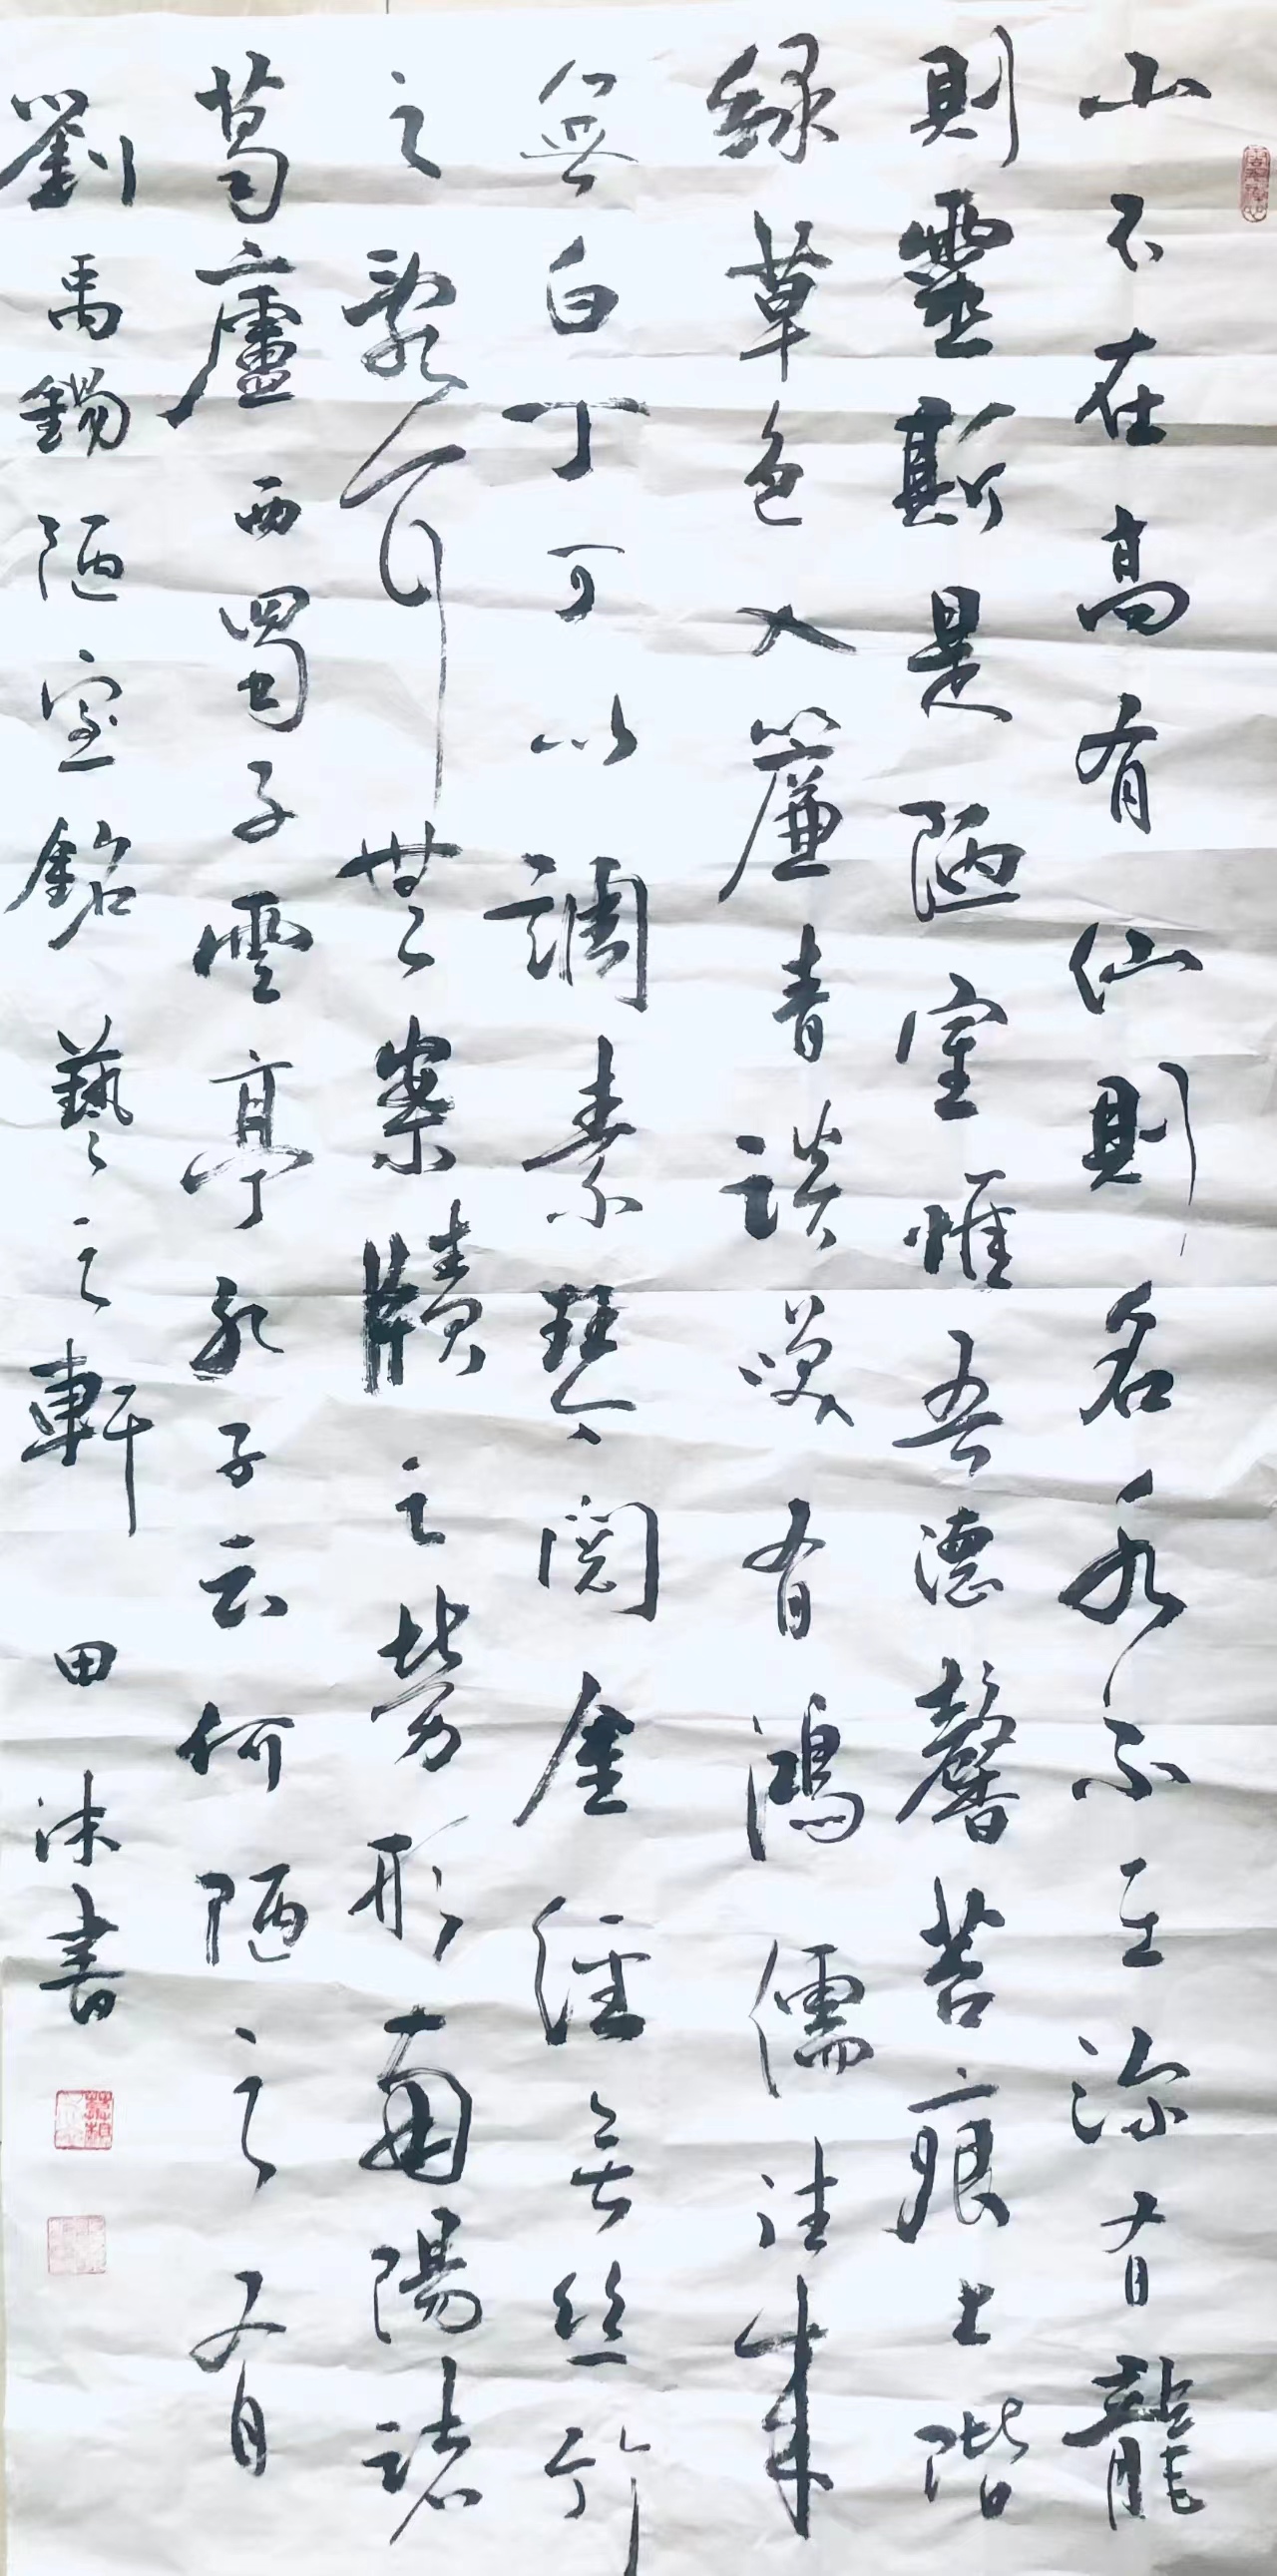 山不在高有仙則名水不在深有龍
則靈斯是陋室惟吾德馨苔痕上階
綠草色入簾青談咲有鴻儒往来
無白丁可以調素琴閱金經無丝竹
之亂耳無案牘之勞形南陽諸
葛廬西蜀子雲亭孔子云何陋之有
劉禹錫陋室銘藝之軒田沫書